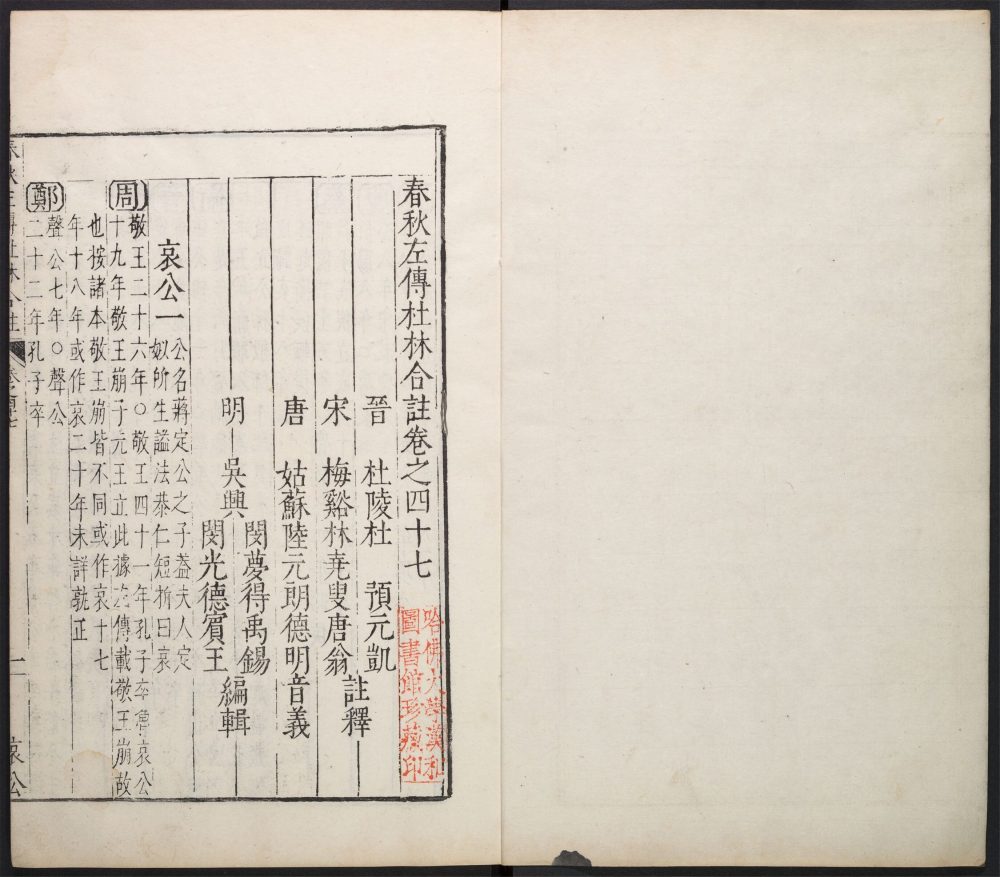 春秋左傳杜林合註卷之四十七
哈佛大學漢和
圖書館珍藏印
晉 杜陵杜 預元凱
宋 梅谿林堯叟唐翁
註釋
唐 姑蘇陸元朗德明音義
明 吳興
閔夢得禹錫
閔光德賓王
編輯
哀公一
公名蔣定公之子葢夫人定
姒所生謚法恭仁短折曰哀
周
敬王二十六年○敬王四十一年孔子卒魯哀公
十九年敬王崩子元王立此據左傳載敬王崩故
也按諸本敬王崩皆不同或作哀十七
年十八年或作哀二十年未詳孰正
鄭
聲公七年○聲公
二十二年孔子卒
春秋左傳杜林合註
卷之四十七
一
哀公